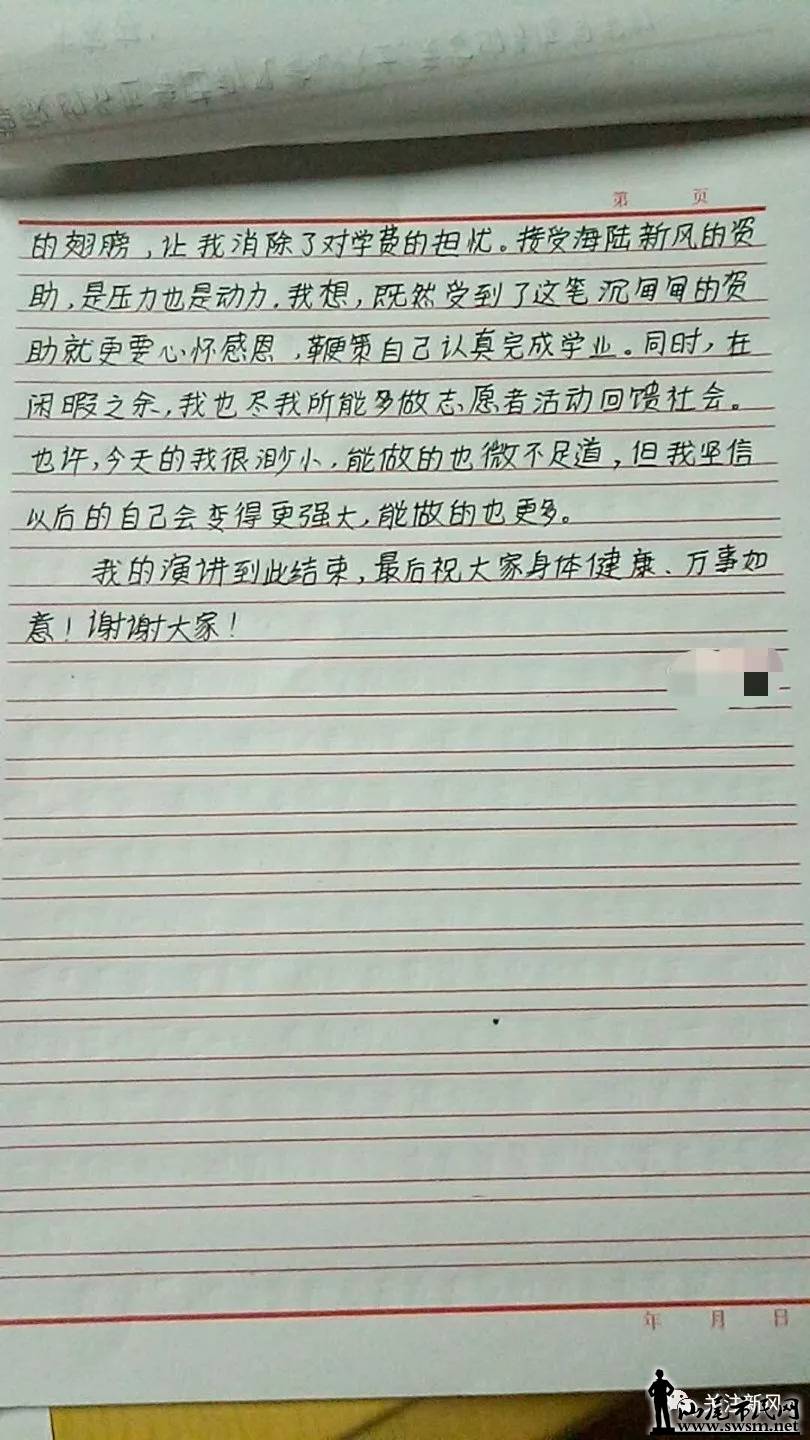 第 页
的翅膀，让我消除了对学费的担忧。接受海陆新风的资
助，是压力也是动力。我想，既然受到了这笔沉甸甸的资
助就更要心怀感恩，鞭策自己认真完成学业。同时，在
闲暇之余，我也尽我所能多做志愿者活动回馈社会。
也许，今天的我很渺小，能做的也微不足道，但我坚信
以后的自己会变得更强大，能做的也更多。
我的演讲到此结束，最后祝大家身体健康、万事如
意！谢谢大家！
年 月 日
关注新风
汕尾市民网
www.swsm.net